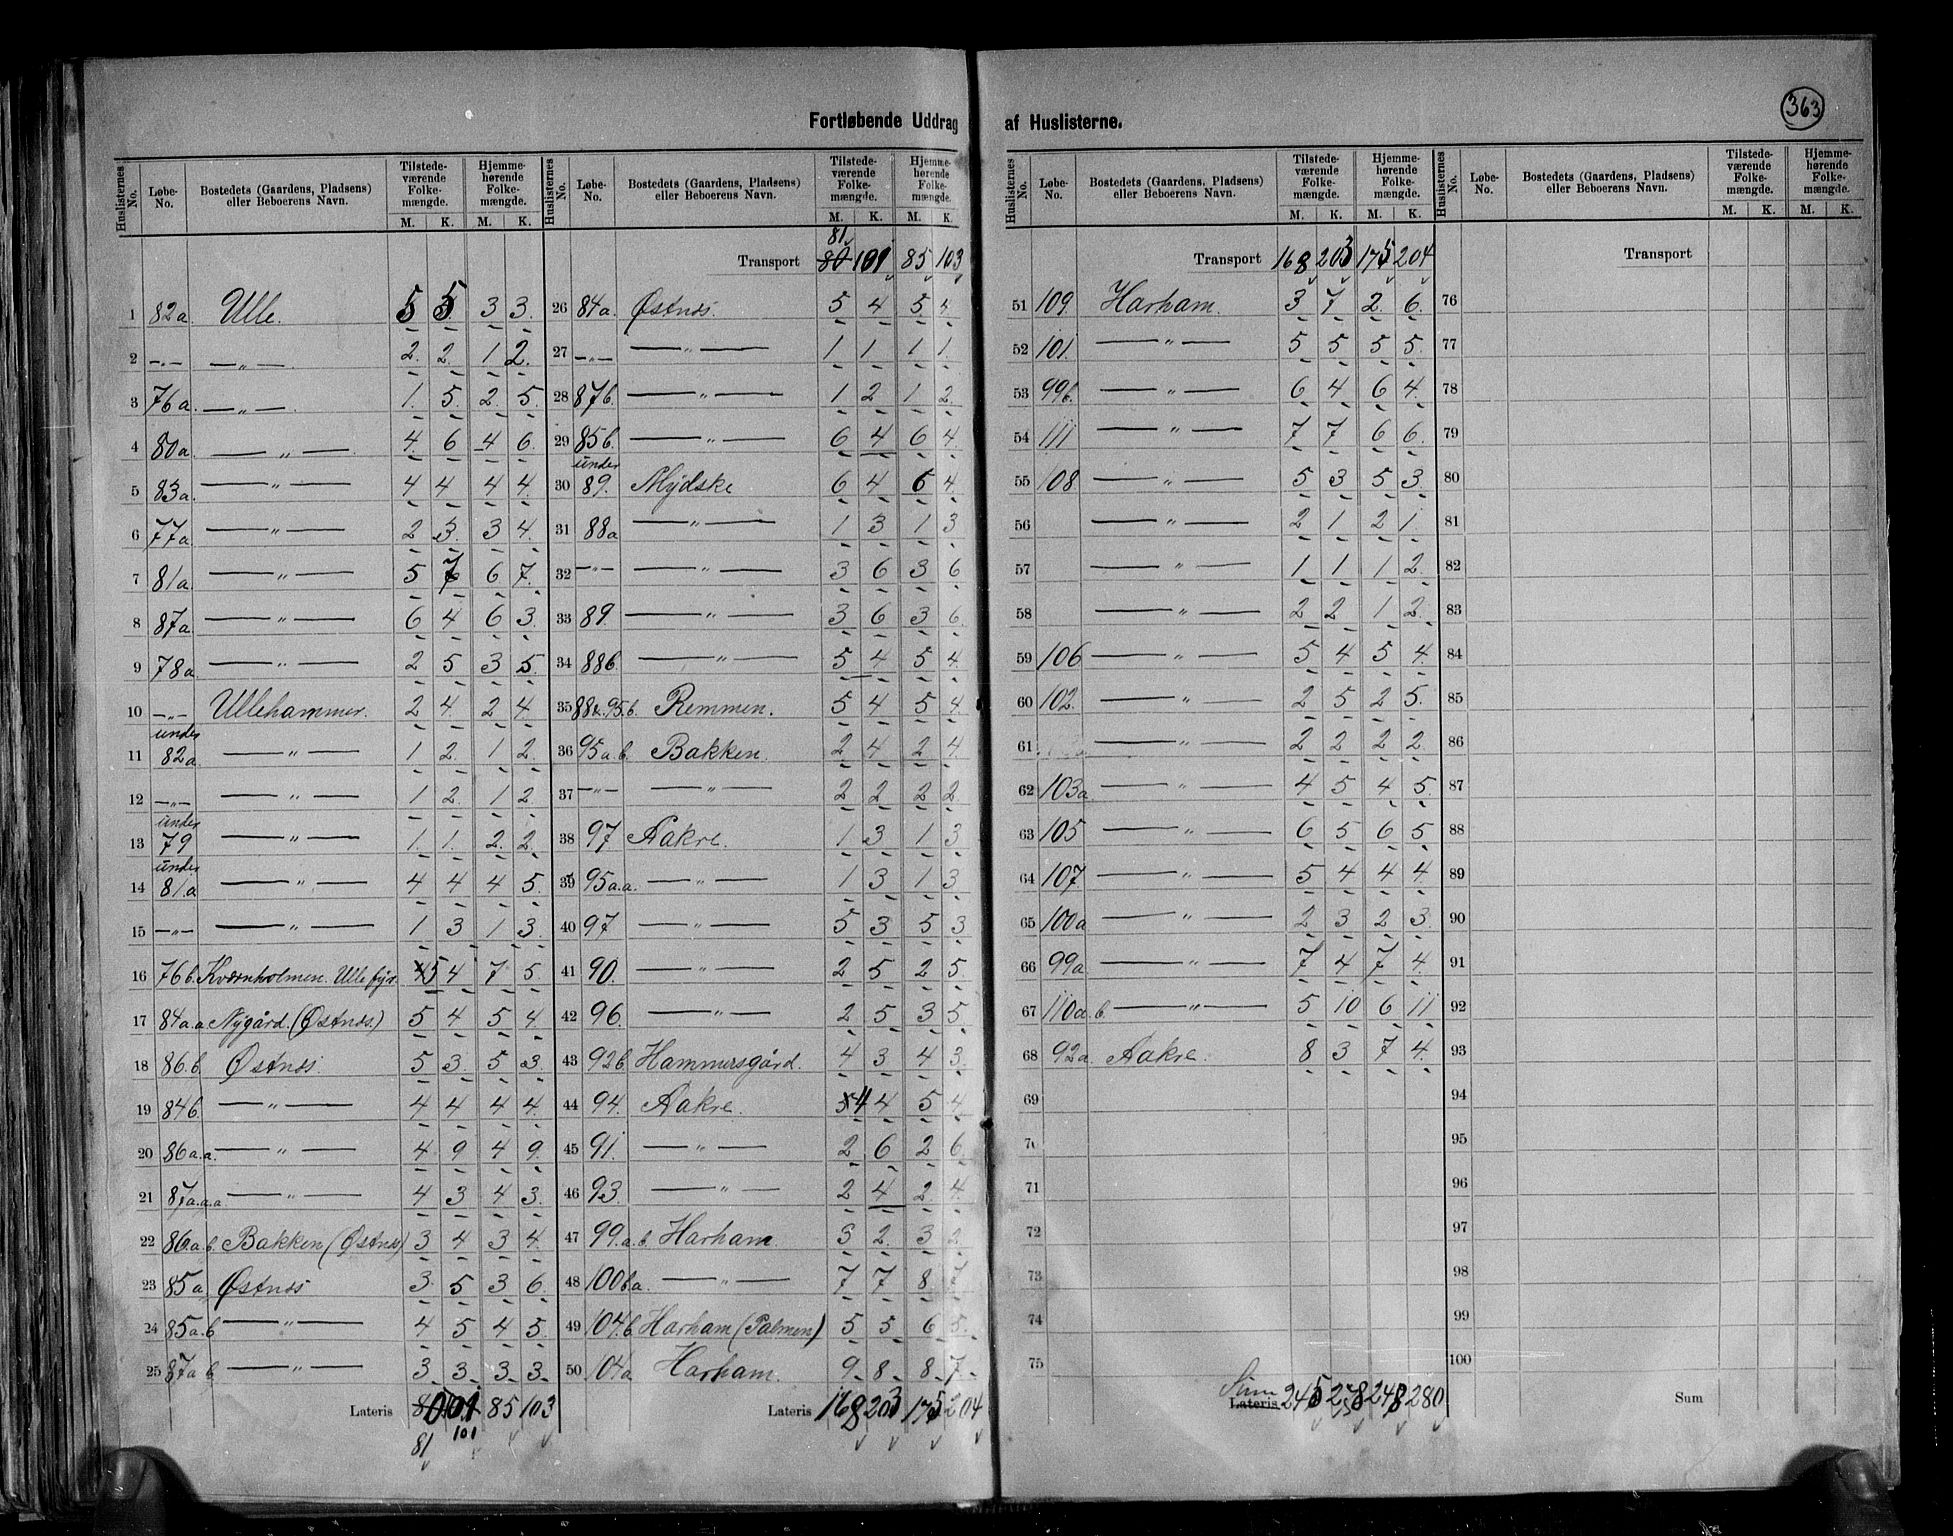 Fortløbende Uddrag af Huslisterne.
363
Huslisternes No. Løbe-No. Bostedets (Gaardens, Pladsens) eller Beboerens Navn. Tilstedeværende Folkemængde. M. K. Hjemmehørende Folkemængde. M. K.
1 82a. Ulle. 5 5 3 3.
2 -„- —„— 2. 2. 1 2.
3 76a. —„— 1. 5. 2. 5.
4 80a. —„— 4. 6 4 6.
5 83a. —„— 4 4 4 4.
6 77a —„— 2 3. 3 4.
7 81a —„— 5 7 6 7.
8 87a —„— 6 4 6 3.
9 78a. —„— 2 5 3 5.
10 -„- Ullehammer. 2 4. 2 4.
11 under 82a —„— 1 2. 1 2.
12 -„- —„— 1 2. 1 2.
13 under 79 —„— 1. 1. 2. 2.
14 under 81.a —„— 4 4 4 5.
15 -„- —„— 1 3 1 3.
16 76b. Kvernholmen. Ulle fyr. 5 4 7 5.
17 84a.a Nygård. (Østnes.) 5 4 5 4
18 86.b. Østnes. 5 3. 5 3.
19 84b. —„— 4 4 4 4.
20 86a.a. —„— 4 9 4 9.
21 87a.a.a —„— 4 3 4 3.
22 86a.b. Bakken (Østnes) 3 4 3 4.
23 85a. Østnes 3. 5 3 6.
24 85a.b —„— 4 5 4 5.
25 87a b —„— 3. 3. 3. 3.
Lateris 85 103
81 101
Huslisternes No. Løbe-No. Bostedets (Gaardens, Pladsens) eller Beboerens Navn. Tilstedeværende Folkemængde. M. K. Hjemmehørende Folkemængde. M. K.
81
Transport 80 101 85 103
26 84a. Østnes. 5 4 5 4.
27 -„- —„— 1 1 1 1.
28 87b. —„— 1 2 1 2.
29 85b. —„— 6 4 6 4.
30 under 89. Mydske 6 4 6 4.
31 88a —„— 1 3 1 3
32 -„- —„— 3 6 3 6
33 89. —„— 3 6 3 6.
34 88b. —„— 5 4 5 4.
35 Remmen. 5 4 5 4.
36 95a.b. Bakken. 2 4 2 4.
37 -„- —„— 2 2 2 2.
38 97 Aakre. 1 3 1 3
39 95a.a. —„— 1 3 1 3.
40 97 —„— 5 3 5 3
41 90. —„— 2 5 2 5.
42 96. —„— 2 5 3 5.
43 92b Hammersgård. 4 3 4 3.
44 94. Aakre. 4 4 5 4
45 91. —„— 2 6 2 6.
46 93. —„— 2 4 2. 4.
47 99.a.b. Harham 3 2. 3 2.
48 100b.a. —„— 7 7 8 7
49 104.b Harham (Palmen) 5 5 6 5.
50 104a Harham. 9 8 8 7
Lateris 168 203 175 204
Huslisternes No. Løbe-No. Bostedets (Gaardens, Pladsens) eller Beboerens Navn. Tilstedeværende Folkemængde. M. K. Hjemmehørende Folkemængde. M. K.
Transport 168 203 175 204
51 109. Harham. 3 7 2 6.
52 101. —„— 5 5 5 5.
53 99b. —„— 6 4 6 4.
54 111 —„— 7 7 6 6.
55 108. —„— 5 3 5 3.
56 —„— 2 1 2 1.
57 —„— 1 1 1 2.
58 —„— 2 2 1 2.
59 106 —„— 5 4 5 4.
60 102. —„— 2 5 2 5.
61 —„— 2 2 2 2.
62 103a. —„— 4 5 4 5.
63 105 —„— 6 5 6 5
64 107. —„— 5 4 4 4.
65 100a —„— 2 3 2 3.
66 99a —„— 7 4 7 4.
67 110a.b. —„— 5 10 6 11
68 92a. Aakre. 8 3 7 4.
69
70
71
72
73
74
75
Sum
Lateris 245 278 248 280
Huslisternes No. Løbe-No. Bostedets (Gaardens, Pladsens) eller Beboerens Navn. Tilstedeværende Folkemængde. M. K. Hjemmehørende Folkemængde. M. K.
Transport
76
77
78
79
80
81
82
83
84
85
86
87
88
89
90
91
92
93
94
95
96
97
98
99
100
Sum